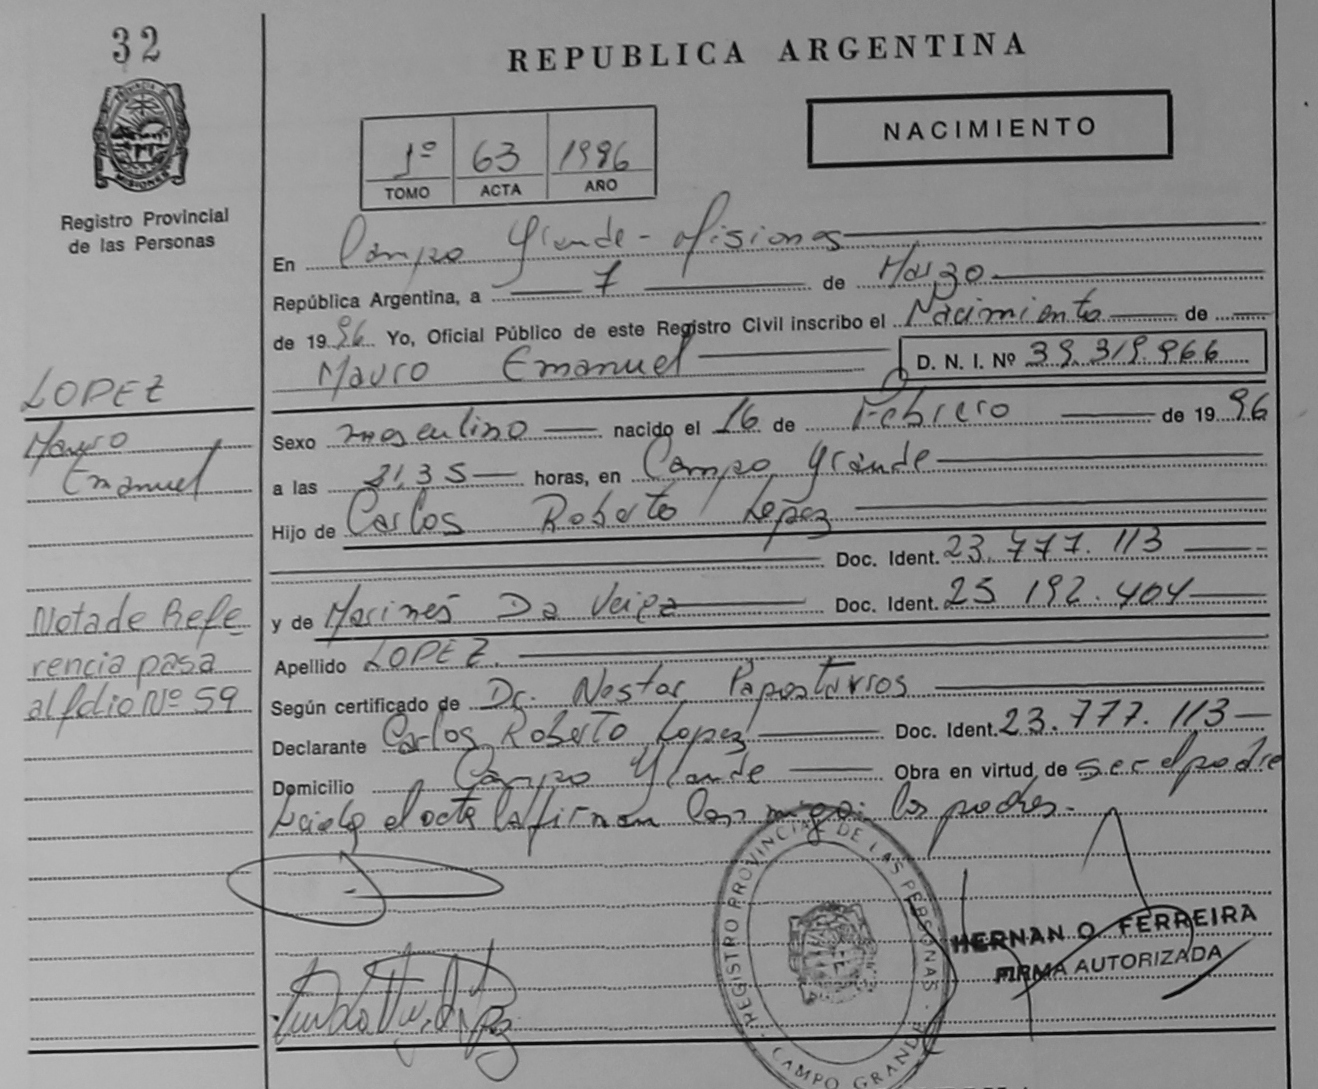 32
REPUBLICA ARGENTINA
NACIMIENTO
1º 63 1996
TOMO ACTA AÑO
MISIONES
Registro Provincial
de las Personas
En Campo Grande - Misiones
República Argentina, a 7 de Marzo
de 1996 Yo, Oficial Público de este Registro Civil inscribo el Nacimiento de
Mauro Emanuel D. N. I. Nº 39.319.966
LOPEZ
Mauro
Emanuel
Sexo masculino nacido el 16 de Febrero de 1996
a las 21,35 horas, en Campo Grande
Hijo de Carlos Roberto Lopez
Doc. Ident. 23.777.113
y de Marines Da Veiga Doc. Ident. 25 192.404
Apellido LOPEZ.
Según certificado de Dr. Nestor
Declarante Carlos Roberto Lopez Doc. Ident. 23.777.113
Domicilio Campo Grande Obra en virtud de ser el padre
el acta la firman los padres.-
Nota de Refe
rencia pasa
al folio Nº 59
REGISTRO PROVINCIAL DE LAS PERSONAS
CAMPO GRANDE
HERNAN O. FERREIRA
FIRMA AUTORIZADA